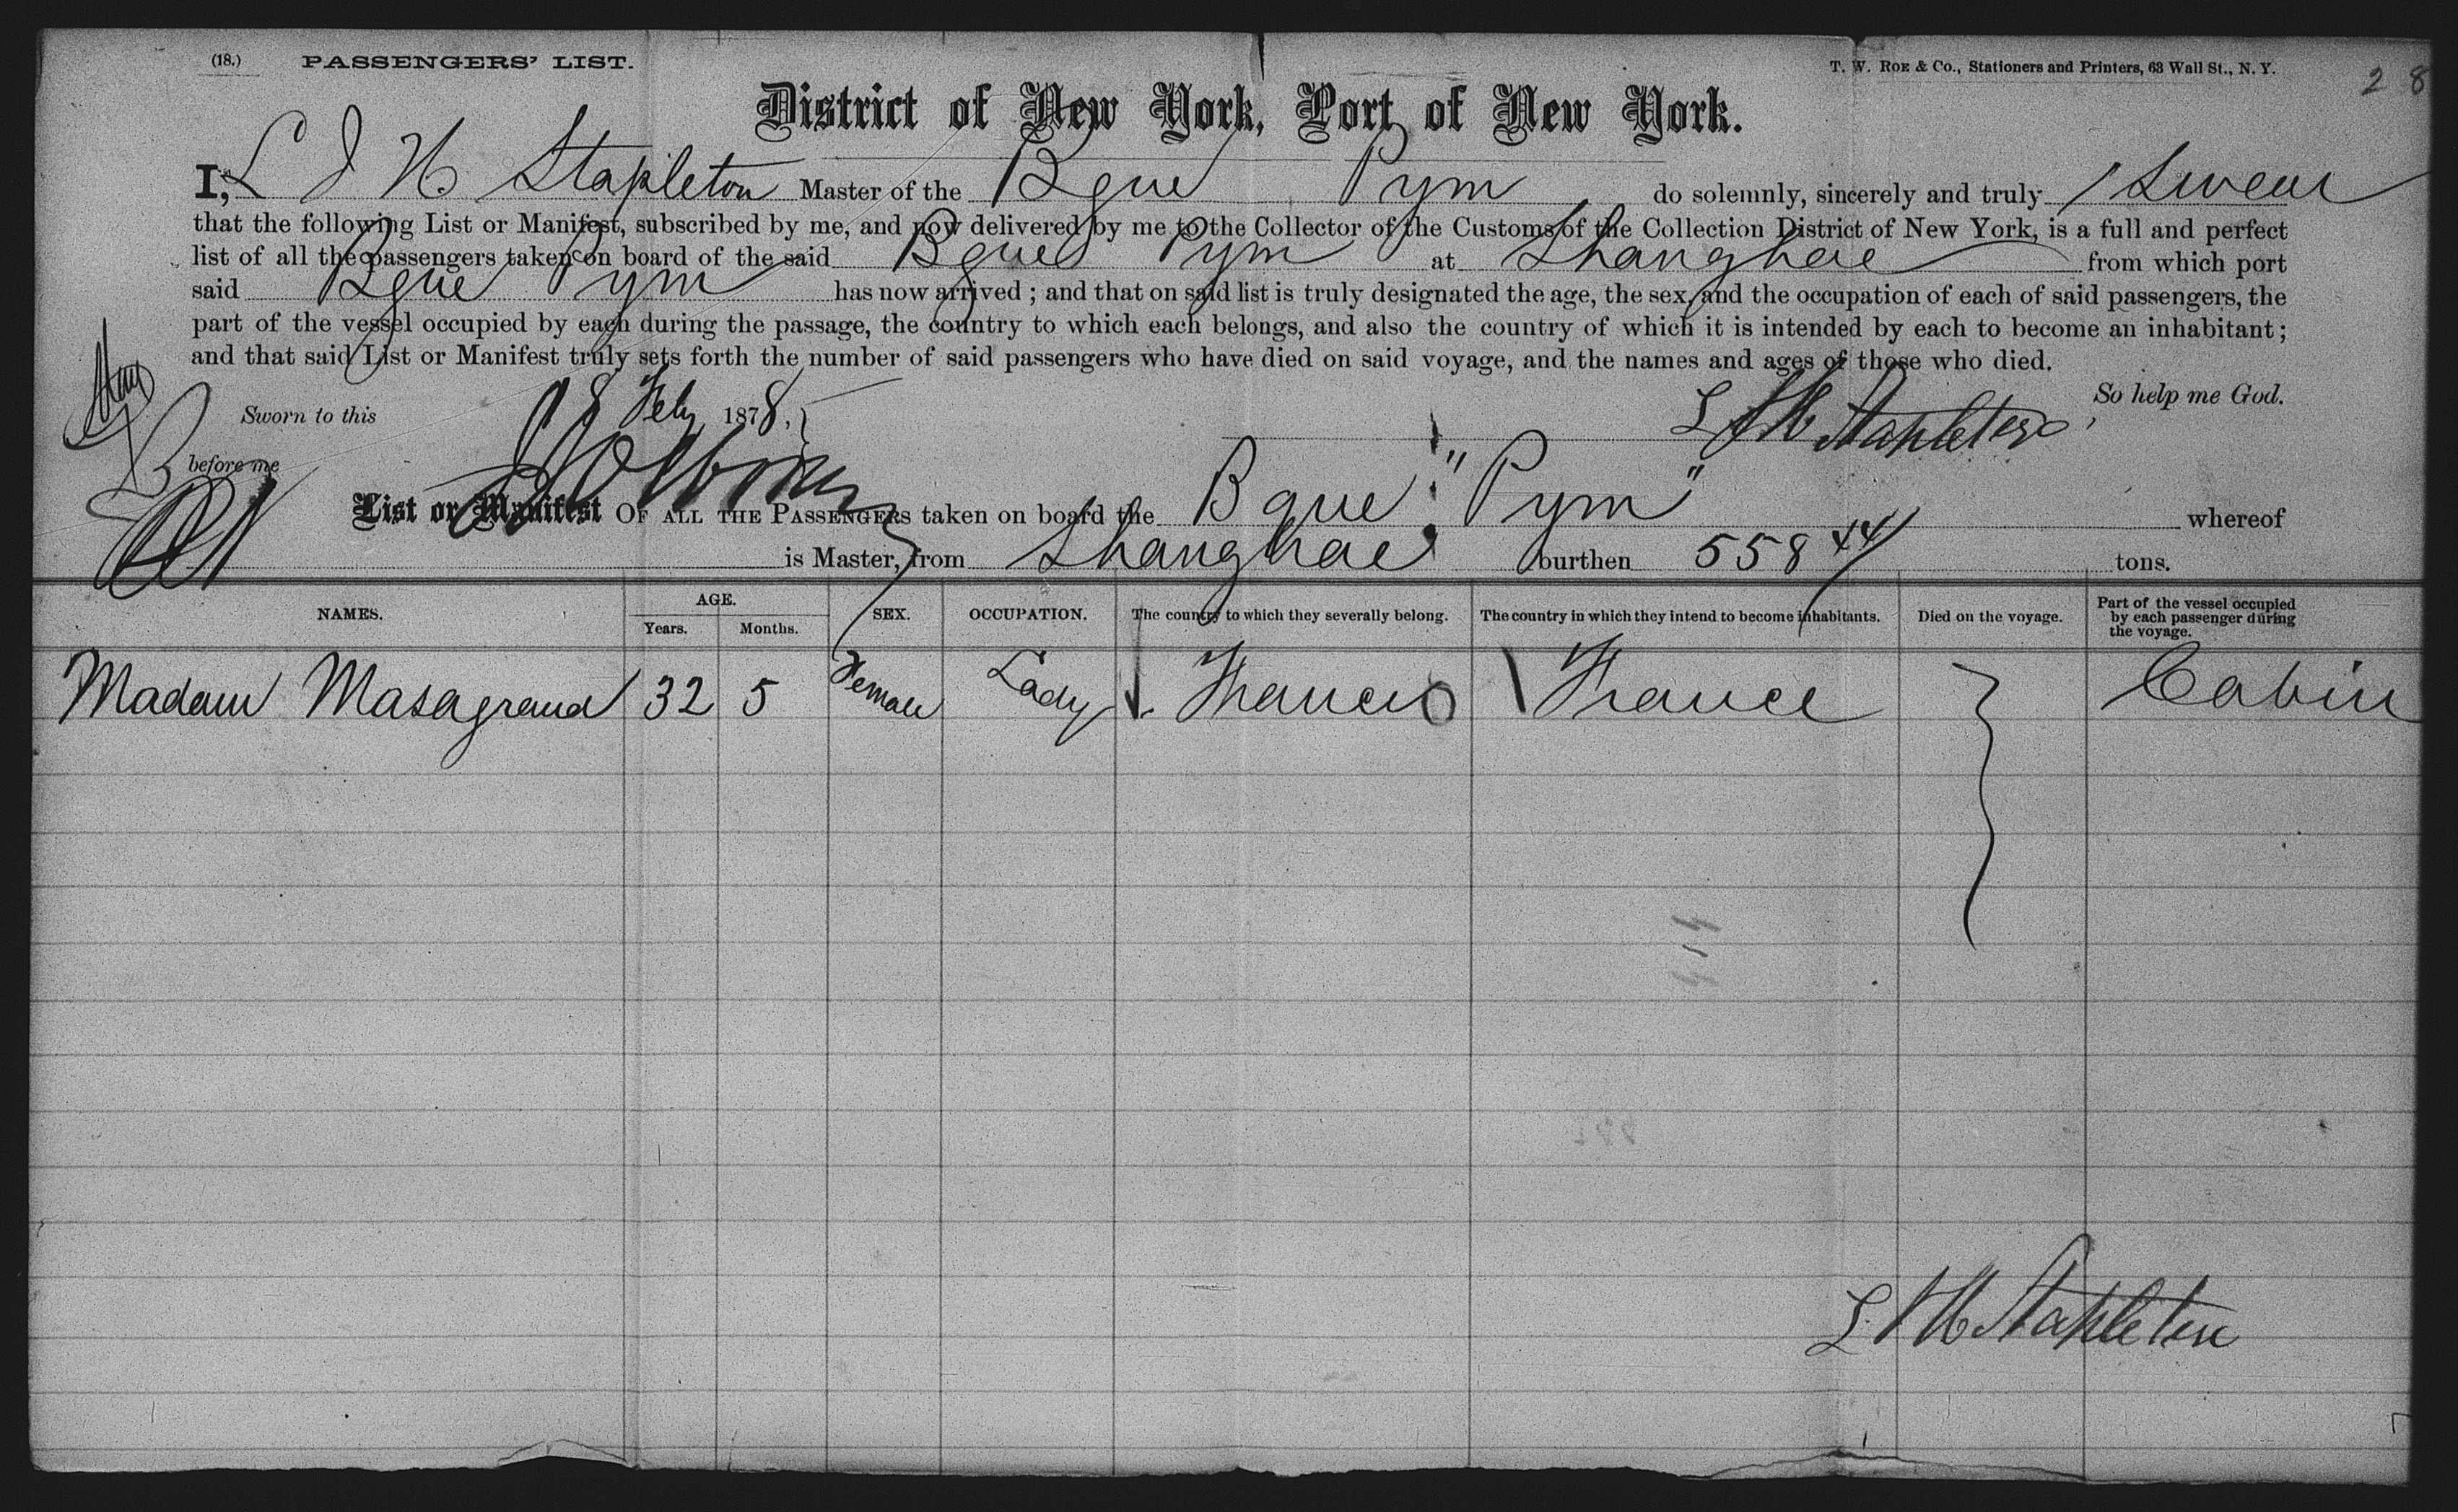 (18.) PASSENGERS' LIST. T. W. ROE & Co., Stationers and Printers, 63 Wall St., N. Y. 28
District of New York, Port of New York.
I, L J H Stapleton Master of the Bque Pym do solemnly, sincerely and truly Swear
that the following List or Manifest, subscribed by me, and now delivered by me to the Collector of the Customs of the Collection District of New York, is a full and perfect
list of all the passengers taken on board of the said Bque Pym at Shanghae from which port
said Bque Pym has now arrived; and that on said list is truly designated the age, the sex, and the occupation of each of said passengers, the
part of the vessel occupied by each during the passage, the country to which each belongs, and also the country of which it is intended by each to become an inhabitant;
and that said List or Manifest truly sets forth the number of said passengers who have died on said voyage, and the names and ages of those who died.
So help me God.
Sworn to this 18 Feby 1878. L J H Stapleton
before me
List or Manifest OF ALL THE PASSENGERS taken on board the Bque "Pym" whereof
is Master, from Shanghae burthen 558 44/ tons.
NAMES. AGE. SEX. OCCUPATION. The country to which they severally belong. The country in which they intend to become inhabitants. Died on the voyage. Part of the vessel occupied by each passenger during the voyage.
Years. Months.
Madam Masagrand 32 5 Female Lady France France Cabin
L. J H Stapleton